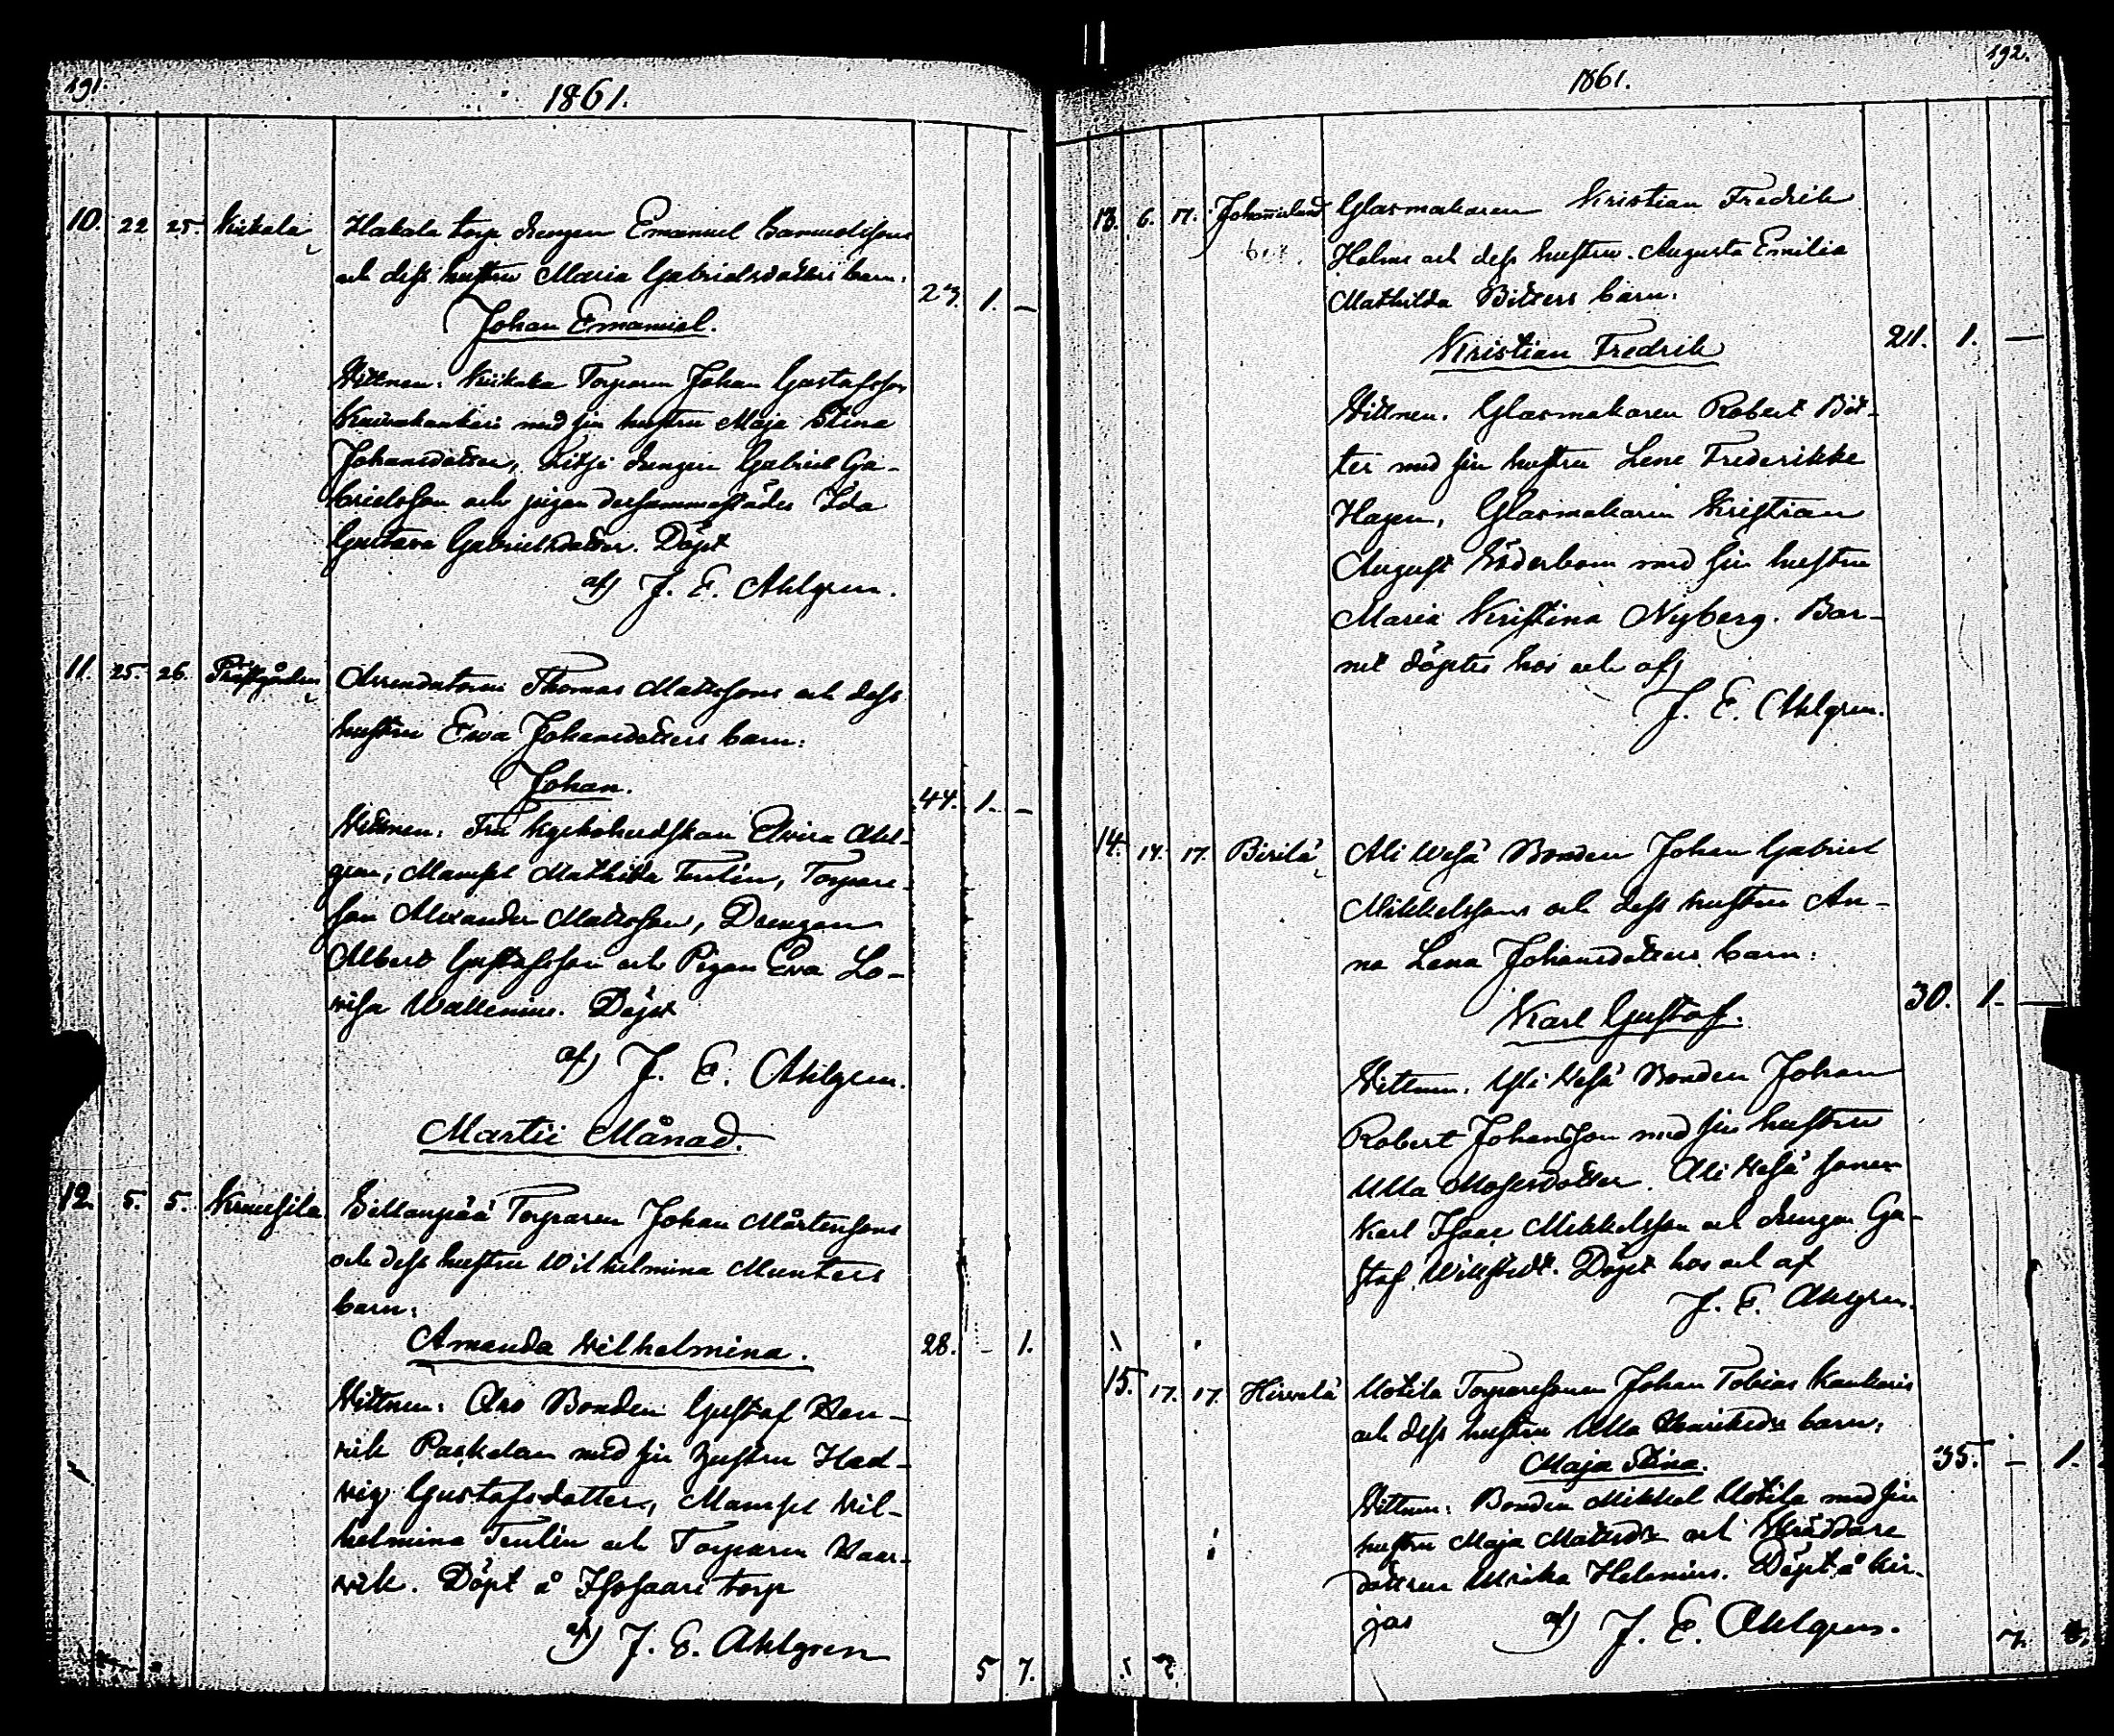 191.
1861.
10. 22 25. Kiikala Hakala torp drengen Emanuel Samuelssons
och dess hustru Maria Gabrielsdotters barn:
Johan Emanuel. 23. 1. —
Vittnen: Kiikala Torparen Johan Gustafsson
med sin hustru Maja Stina
Johansdotter, drengen Gabriel Ga-
brielsson och pigan dersammastädes Ida
Gustava Gabrielsdotter. Döpt
af J. E. Ahlgren.
11. 25. 26. Prästgården Arrendatorn Thomas Mattssons och dess
hustru Ewa Johansdotters barn:
Johan. 44. 1. —
Vittnen: Fru Kyrkoherdskan Elvira Ahl-
gren, Mamsel Mathilda Tentin, Torpare-
son Alexander Mattsson, Drengen
Albert Gustafsson och Pigan Eva Lo-
visa Wallenius. Döpt
af J. E. Ahlgren.
Martii Månad.
12. 5. 5. Kruusila Torparen Johan Mårtensons
och dess hustru Wilhelmina Munters
barn:
Amanda Vilhelmina. 28. – 1.
Vittnen: Bonden Gustaf Hen-
rik Paskelan med sin hustru Hed-
vig Gustafsdotter, Mamsel Vil-
helmina Tentin och Torparen Kaar-
vik. Döpt å Isosaari torp
af J. E. Ahlgren
5 7.
192.
1861.
13. 6. 17. Johannislund Glasmakaren Kristian Fredrik
Holms och dess hustru Augusta Emilia
Mathilda Bitters barn:
Kristian Fredrik 21. 1. —
Vittnen. Glasmakaren Robert Bit-
ter med sin hustru Lene Frederikke
Hagen, Glasmakaren Kristian
August Söderbom med sin hustru
Maria Kristina Nyberg. Bar-
net döptes hos och af
J. E. Ahlgren.
14. 14. 17. Pirilä Ali Vesä Bonden Johan Gabriel
Mikkelssons och dess hustru An-
na Lena Johansdotters barn:
Karl Gustaf. 30. 1. —
Vittnen. Yli Vesä Bonden Johan
Robert Johansson med sin hustru
Ulla Mosesdotter. Ali Vesä sonen
Karl Isaac Mikkelsson och drengen Gu-
staf Willstedt. Döpt hos och af
J. E. Ahlgren.
15. 17. 17. Hirvelä Uotila Torparesonen Johan Tobias Kankaris
och dess hustru Ulla Henriksdr barn:
Maja Stina. 35. – 1.
Vittnen: Bonden Mikkel Uotila med sin
hustru Maja Mattsdr och Skräddare
dottren Ulrika Helenius. Döpt å Kir-
jas af J. E. Ahlgren.
7.